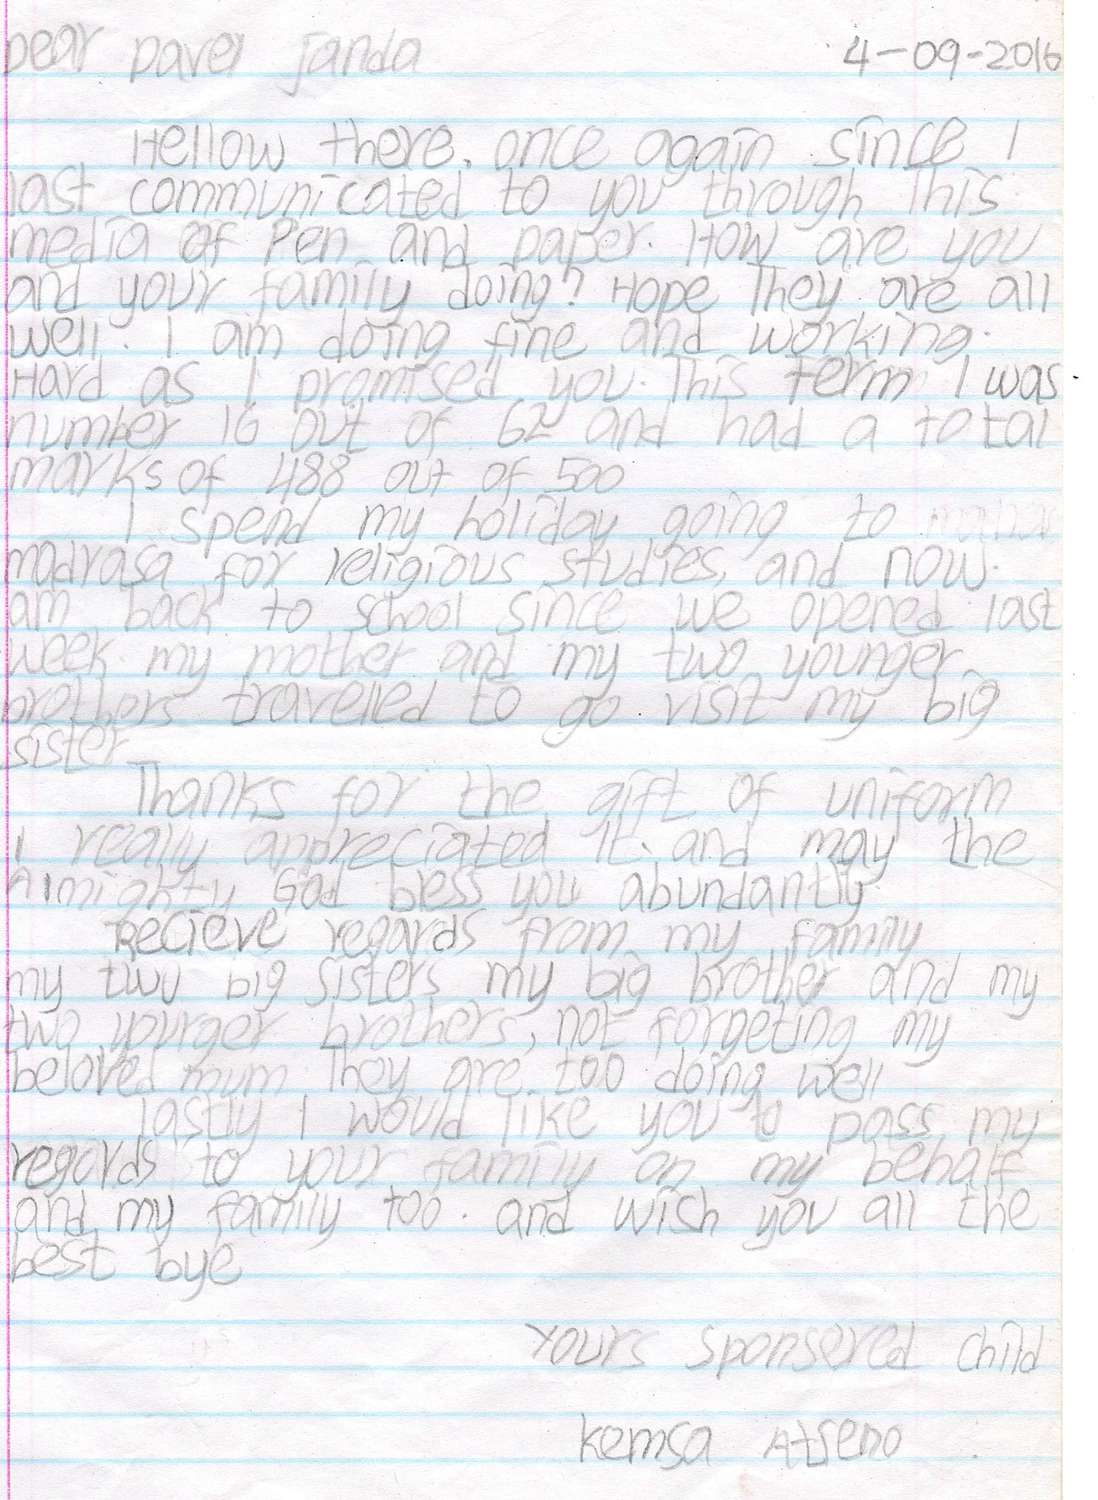 Dear Pavel janda 4-09-2016
Hellow there, once again since I
last communicated to you through This
media of Pen and paper. How are you
and your family doing? Hope They are all
well. I am doing fine and working.
Hard as I promised you. This Term I was
number 16 out of 62 and had a total
marks of 488 out of 500
I spend my holiday going to
madrasa for religious studies, and now.
am back to school since we opened last
week. my mother and my two younger
brothers travelled to go visit my big
sister
Thanks for the gift of uniform
I really appreciated It. and may the
Almighty God bless you abundantly
Recieve regards from my family
my two big sisters my big brother and my
two yourger brothers, not forgeting my
beloved mum They are too doing well
lastly I would like you to pass my
regards to your family on my behalf
and my family too. and wish you all the
best bye
Yours Sponsered Child
Kemsa Atieno